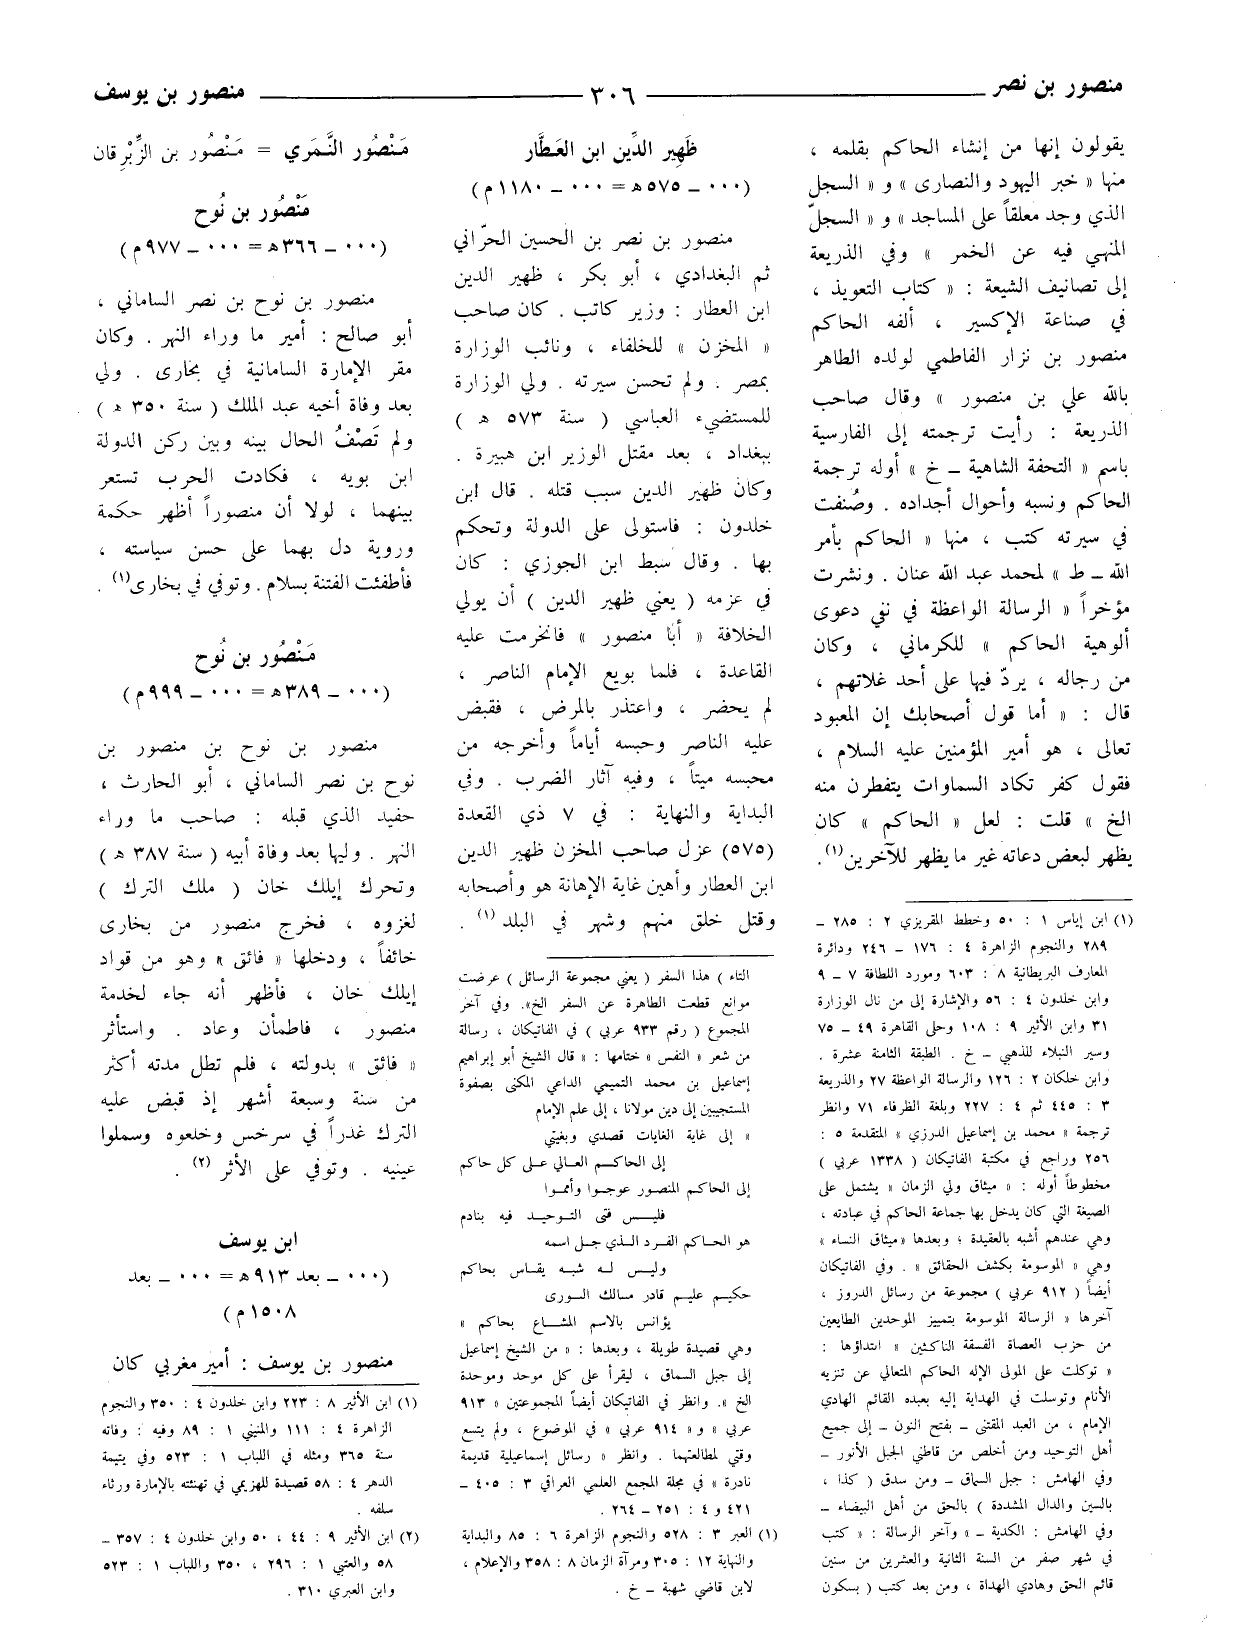 منصور بن نصر ٣٠٦ منصور بن يوسف
يقولون إنها من إنشاء الحاكم بقلمه ،
منها « خبر اليهود والنصارى » و « السجل
الذي وجد معلقاً على المساجد » و « السجلّ
المنهي فيه عن الخمر » وفي الذريعة
إلى تصانيف الشيعة : « كتاب التعويذ ،
في صناعة الإكسير ، ألفه الحاكم
منصور بن نزار الفاطمي لولده الطاهر
بالله علي بن منصور » وقال صاحب
الذريعة : رأيت ترجمته إلى الفارسية
باسم « التحفة الشاهية ـ خ » أوله ترجمة
الحاكم ونسبه وأحوال أجداده . وصُنفت
في سيرته كتب ، منها « الحاكم بأمر
الله ـ ط » لمحمد عبد الله عنان . ونشرت
مؤخراً « الرسالة الواعظة في نفي دعوى
ألوهية الحاكم » للكرماني ، وكان
من رجاله ، يردّ فيها على أحد غلاتهم ،
قال : « أما قول أصحابك إن المعبود
تعالى ، هو أمير المؤمنين عليه السلام ،
فقول كفر تكاد السماوات يتفطرن منه
الخ » قلت : لعل « الحاكم » كان
يظهر لبعض دعاته غير ما يظهر للآخرين(١).
(١) ابن إياس ١ : ٥٠ وخطط المقريزي ٢ : ٢٨٥ ـ
٢٨٩ والنجوم الزاهرة ٤ : ١٧٦ ـ ٢٤٦ ودائرة
المعارف البريطانية ٨ : ٦٠٣ ومورد اللطافة ٧ ـ ٩
وابن خلدون ٤ : ٥٦ والإشارة إلى من نال الوزارة
٣١ وابن الأثير ٩ : ١٠٨ وحلى القاهرة ٤٩ ـ ٧٥
وسير النبلاء للذهبي ـ خ . الطبقة الثامنة عشرة .
وابن خلكان ٢ : ١٢٦ والرسالة الواعظة ٢٧ والذريعة
٣ : ٤٤٥ ثم ٤ : ٢٢٧ وبلغة الظرفاء ٧١ وانظر
ترجمة « محمد بن إسماعيل الدرزي » المتقدمة ٥ :
٢٥٦ وراجع في مكتبة الفاتيكان ( ١٣٣٨ عربي )
مخطوطاً أوله : « ميثاق ولي الزمان » يشتمل على
الصيغة التي كان يدخل بها جماعة الحاكم في عبادته ،
وهي عندهم أشبه بالعقيدة ؛ وبعدها «ميثاق النساء »
وهي « الموسومة بكشف الحقائق » . وفي الفاتيكان
أيضاً ( ٩١٢ عربي ) مجموعة من رسائل الدروز ،
آخرها « الرسالة الموسومة بتمييز الموحدين الطايعين
من حزب العصاة الفسقة الناكثين » ابتداؤها :
« توكلت على المولى الإله الحاكم المتعالي عن تنزيه
الأنام وتوسلت في الهداية إليه بعبده القائم الهادي
الإمام ، من العبد المقتنى ـ بفتح النون ـ إلى جميع
أهل التوحيد ومن أخلص من قاطني الجبل الأنور ـ
وفي الهامش : جبل السماق ـ ومن سدق ( كذا ،
بالسين والدال المشددة ) بالحق من أهل البيضاء ـ
وفي الهامش : الكدية ـ » وآخر الرسالة : « كتب
في شهر صفر من السنة الثانية والعشرين من سنين
قائم الحق وهادي الهداة ، ومن بعد كتب ( بسكون
ظَهِير الدِّين ابن العَطَّار
(٠٠٠ ـ ٥٧٥ھ = ٠٠٠ ـ ١١٨٠م)
منصور بن نصر بن الحسين الحرّاني
ثم البغدادي ، أبو بكر ، ظهير الدين
ابن العطار : وزير كاتب . كان صاحب
« المخزن » للخلفاء ، ونائب الوزارة
بمصر . ولم تحسن سيرته . ولي الوزارة
للمستضيء العباسي ( سنة ٥٧٣ ھ )
ببغداد ، بعد مقتل الوزير ابن هبيرة .
وكان ظهير الدين سبب قتله . قال ابن
خلدون : فاستولى على الدولة وتحكم
بها . وقال سبط ابن الجوزي : كان
في عزمه ( يعني ظهير الدين ) أن يولي
الخلافة « أبا منصور » فانخرمت عليه
القاعدة ، فلما بويع الإمام الناصر ،
لم يحضر ، واعتذر بالمرض ، فقبض
عليه الناصر وحبسه أياماً وأخرجه من
محبسه ميتاً ، وفيه آثار الضرب . وفي
البداية والنهاية : في ٧ ذي القعدة
(٥٧٥) عزل صاحب المخزن ظهير الدين
ابن العطار وأهين غاية الإهانة هو وأصحابه
وقتل خلق منهم وشهر في البلد (١) .
التاء ) هذا السفر ( يعني مجموعة الرسائل ) عرضت
موانع قطعت الطاهرة عن السفر الخ». وفي آخر
المجموع ( رقم ٩٣٣ عربي ) في الفاتيكان ، رسالة
من شعر « النفس » ختامها : « قال الشيخ أبو إبراهيم
إسماعيل بن محمد التميمي الداعي المكنى بصفوة
المستجيبين إلى دين مولانا ، إلى علم الإمام
« إلى غاية الغايات قصدي وبغيتي
إلى الحاكم العالي على كل حاكم
إلى الحاكم المنصور عوجوا وأمموا
فليس فتى التوحيد فيه بنادم
هو الحاكم الفرد الذي جل اسمه
وليس له شبه يقاس بحاكم
حكيم عليم قادر مالك الورى
يؤانس بالاسم المشاع بحاكم »
وهي قصيدة طويلة ، وبعدها : « من الشيخ إسماعيل
إلى جبل السماق ، ليقرأ على كل موحد وموحدة
الخ ». وانظر في الفاتيكان أيضاً المجموعتين « ٩١٣
عربي » و « ٩١٤ عربي » في الموضوع ، ولم يتسع
وقتي لمطالعتهما . وانظر « رسائل إسماعيلية قديمة
نادرة » في مجلة المجمع العلمي العراقي ٣ : ٤٠٥ ـ
٤٢١ و ٤ : ٢٥١ ـ ٢٦٤ .
(١) العبر ٣ : ٥٢٨ والنجوم الزاهرة ٦ : ٨٥ والبداية
والنهاية ١٢ : ٣٠٥ ومرآة الزمان ٨ : ٣٥٨ والإعلام ،
لابن قاضي شهبة ـ خ .
مَنْصُور النَّمَري = مَنْصُور بن الزِّبْرِقان
مَنْصُور بن نُوح
(٠٠٠ ـ ٣٦٦ھ = ٠٠٠ ـ ٩٧٧م)
منصور بن نوح بن نصر الساماني ،
أبو صالح : أمير ما وراء النهر . وكان
مقر الإمارة السامانية في بخارى . ولي
بعد وفاة أخيه عبد الملك ( سنة ٣٥٠ ھ )
ولم تَصْفُ الحال بينه وبين ركن الدولة
ابن بويه ، فكادت الحرب تستعر
بينهما ، لولا أن منصوراً أظهر حكمة
وروية دل بهما على حسن سياسته ،
فأطفئت الفتنة بسلام . وتوفي في بخارى(١) .
مَنْصُور بن نُوح
(٠٠٠ ـ ٣٨٩ھ = ٠٠٠ ـ ٩٩٩م)
منصور بن نوح بن منصور بن
نوح بن نصر الساماني ، أبو الحارث ،
حفيد الذي قبله : صاحب ما وراء
النهر . وليها بعد وفاة أبيه ( سنة ٣٨٧ ھ )
وتحرك إيلك خان ( ملك الترك )
لغزوه ، فخرج منصور من بخارى
خائفاً ، ودخلها « فائق » وهو من قواد
إيلك خان ، فأظهر أنه جاء لخدمة
منصور ، فاطمأن وعاد . واستأثر
« فائق » بدولته ، فلم تطل مدته أكثر
من سنة وسبعة أشهر إذ قبض عليه
الترك غدراً في سرخس وخلعوه وسملوا
عينيه . وتوفي على الأثر (٢) .
ابن يوسف
(٠٠٠ ـ بعد ٩١٣ھ = ٠٠٠ ـ بعد
١٥٠٨م)
منصور بن يوسف : أمير مغربي كان
(١) ابن الأثير ٨ : ٢٢٣ وابن خلدون ٤ : ٣٥٠ والنجوم
الزاهرة ٤ : ١١١ والمنيني ١ : ٨٩ وفيه : وفاته
سنة ٣٦٥ ومثله في اللباب ١ : ٥٢٣ وفي يتيمة
الدهر ٤ : ٥٨ قصيدة للهزيمي في تهنئته بالإمارة ورثاء
سلفه .
(٢) ابن الأثير ٩ : ٤٤ ، ٥٠ وابن خلدون ٤ : ٣٥٧ ـ
٥٨ والعتبي ١ : ٢٩٦ ، ٣٥٠ واللباب ١ : ٥٢٣
وابن العبري ٣١٠ .